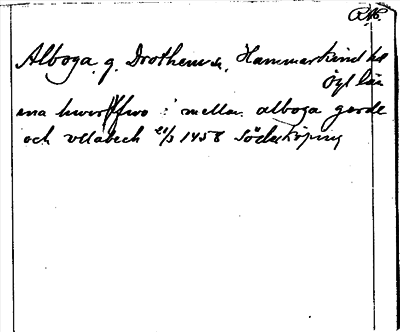 R.A.
Alboga, g. Drothems sn, Hammarkind hd
Ögl län
ena hwerffwo i mellan alboga garde
och vllabech 21/3 1458 Söderköping